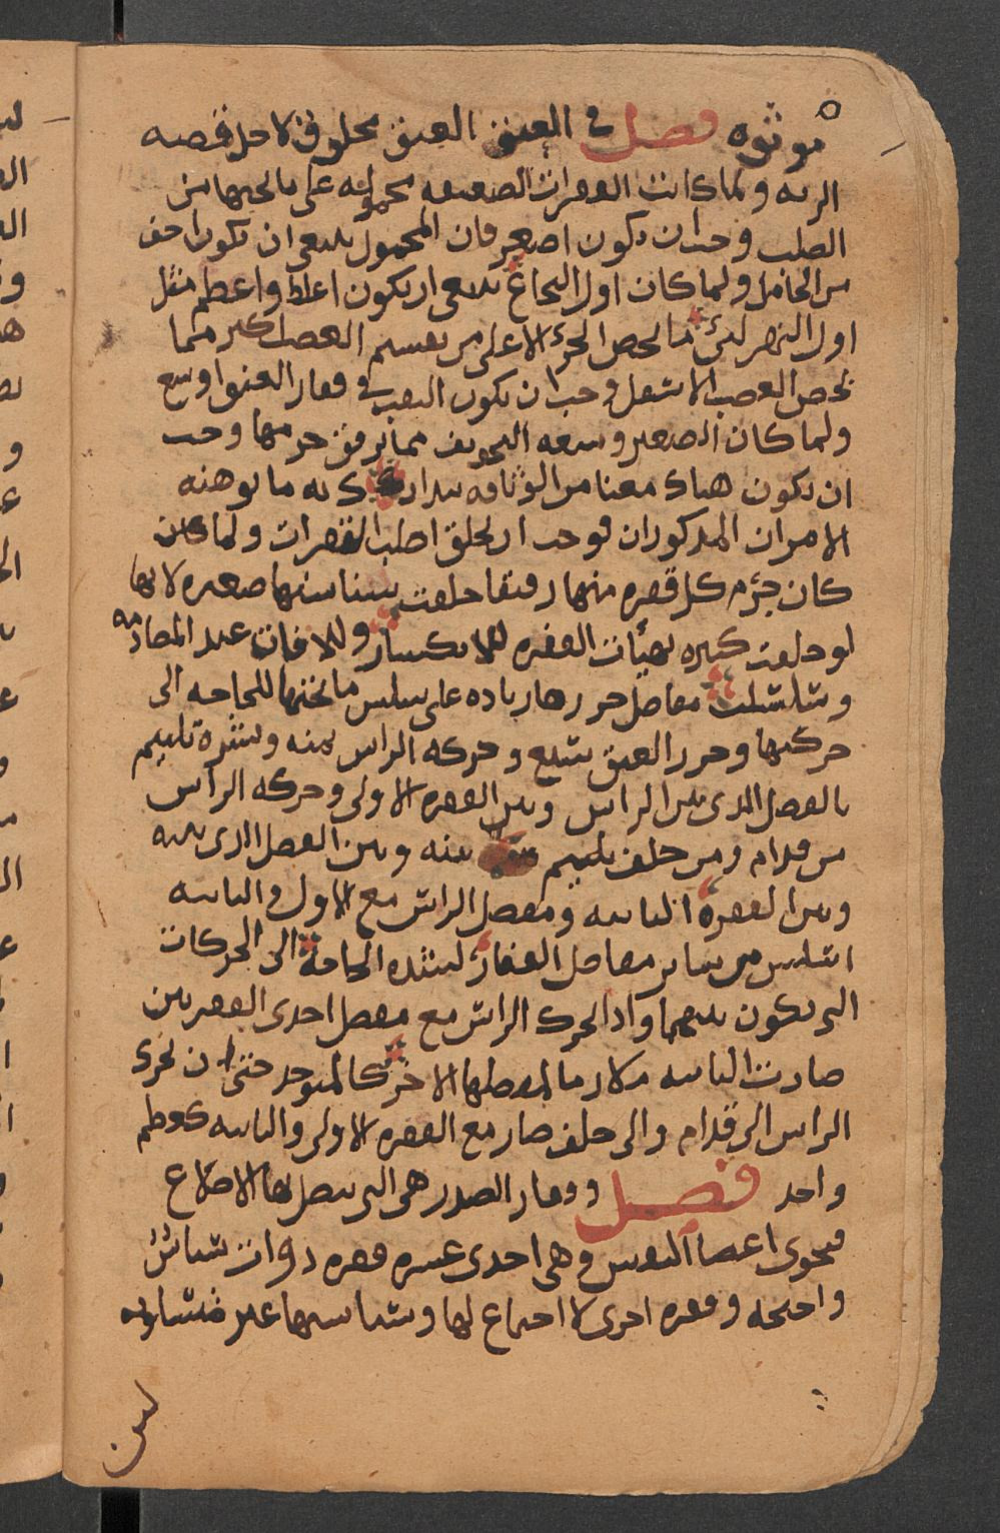 موثوه فصل في العنق العنق مخلوق لاجل قصبه
الريه ولما كانت الفقرات الضعيفه محموله على ما تحتها من
الصلب وجب ان يكون اصغر فان المحمول ينبغي ان يكون اخف
من الحامل ولما كان اول النخاع ينبغي ان يكون اغلظ واعظم مثل
اول النهر لئن ما يخص الجزء الاعلى من تقسم العصب اكبر مما
يخص العصب الاسفل وجب ان يكون الثقب في فقار العنق اوسع
ولما كان الصغير وسعه التجويف مما يرقق جرمها وجب
ان يكون هناك معنا من الوثاقه يتدارك به ما يوهنه
الامران المذكوران فوجب ان يخلق اصلب الفقرات ولما كان
كان جرم كل فقره منها رقيقا خلقت سناسنها صغيره لانها
لو خلقت كبيره تهيات الفقره للانكسار وللافات عند المصادمه
وشلشلت مفاصل خرزها زياده على سلس ما تحتها للحاجه الى
حركتها وخرز العنق سبع وحركه الراس يمنه ويسره تلتيم
بالفصل الذي بين الراس وبين الفقره الاولى وحركه الراس
من قدام ومن خلف يلتيم منه وبين الفصل الذي بينه
وبين الفقره الثانيه ومفصل الراس مع الاول والثانيه
اشلس من ساير مفاصل الفقار لشده الحاجة الى الحركات
التي يكون بينهما واذا تحرك الراس مع مفصل احدى الفقرتين
صارت الثانيه ملازما لمفصلها الاخر كالمتوحد حتى ان تحرك
الراس الى قدام والى خلف صار مع الفقره الاولى والثانيه كعظم
واحد فصل وفقار الصدر هي التي يتصل بها الاضلاع
فيحوى اعضا النفس وهي احدى عشره فقره ذوات شناشن
واجنحه وفقره اخرى لا اجنحه لها وشناسنها غير متساويه
لين